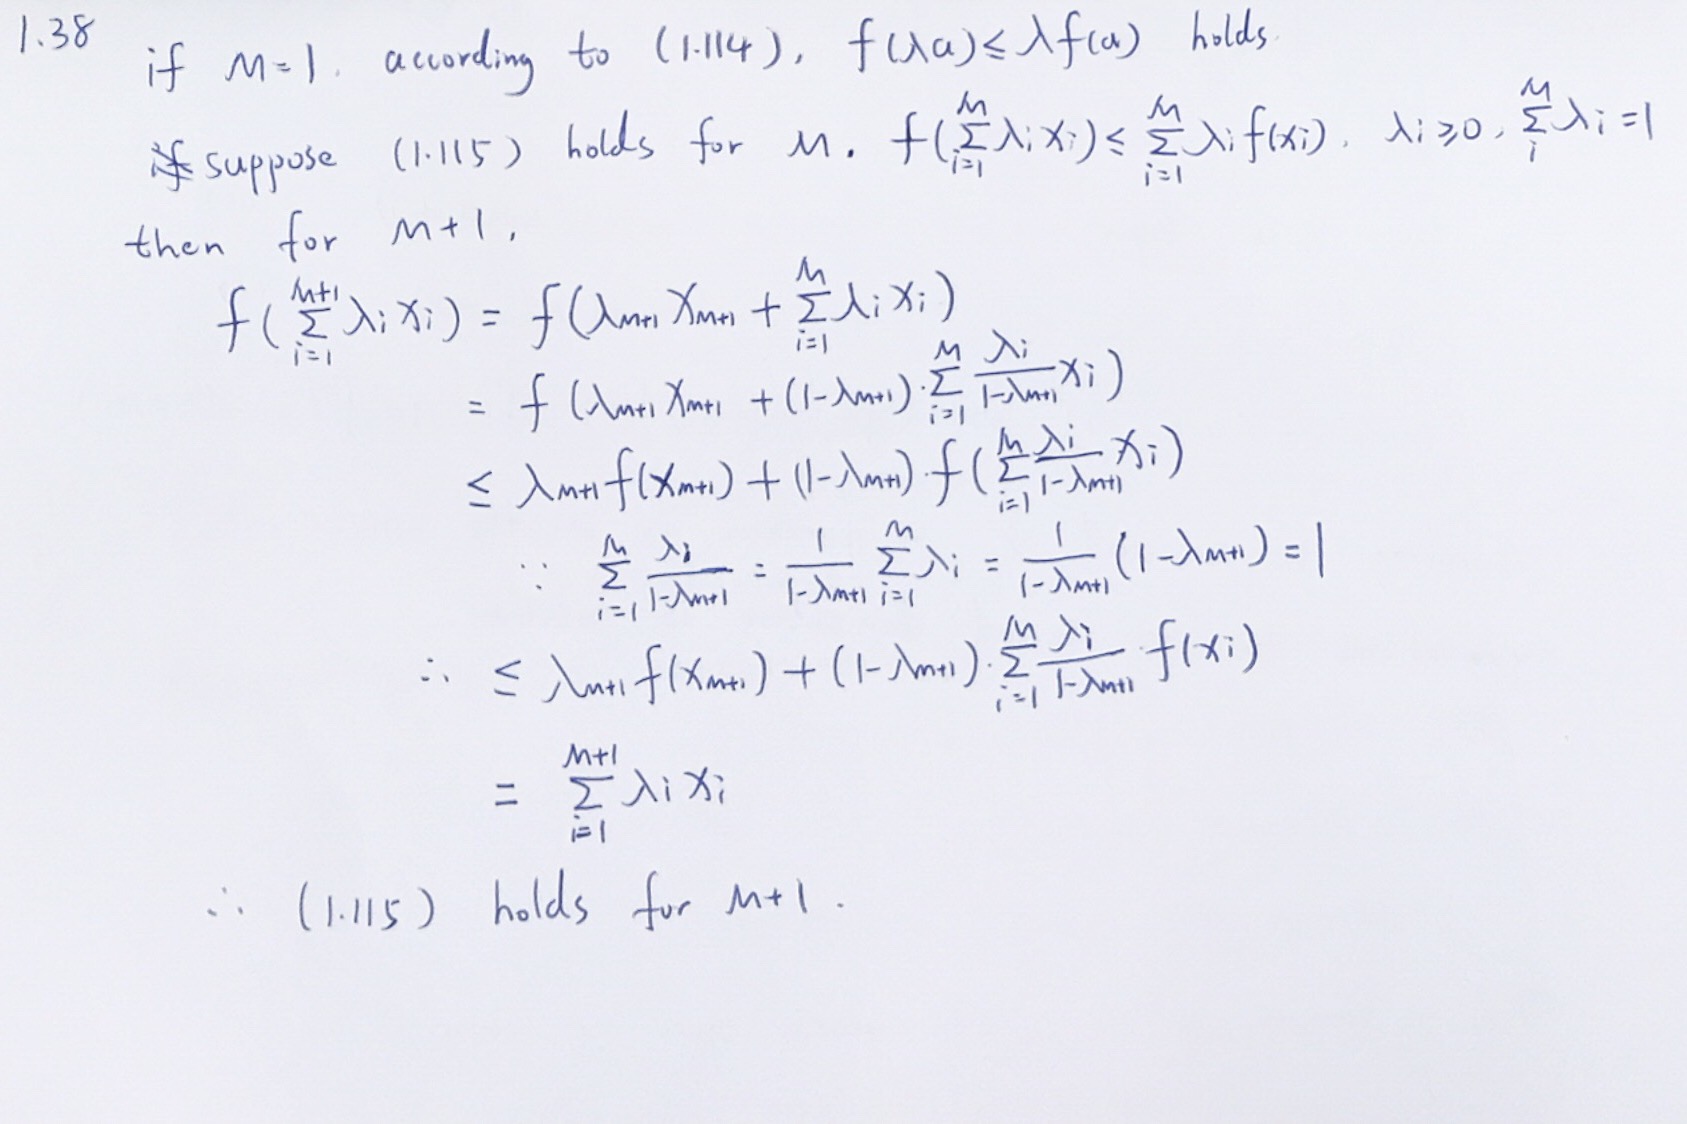 1.38
if M=1. according to (1.114), f(λa)≤λf(a) holds.
suppose (1.115) holds for M. f(∑_{i=1}^{M} λ_i x_i) ≤ ∑_{i=1}^{M} λ_i f(x_i). λ_i≥0, ∑_{i}^{M} λ_i = 1
then for M+1,
f(∑_{i=1}^{M+1} λ_i x_i) = f(λ_{M+1} x_{M+1} + ∑_{i=1}^{M} λ_i x_i)
= f(λ_{M+1} x_{M+1} + (1-λ_{M+1})·∑_{i=1}^{M} \frac{λ_i}{1-λ_{M+1}} x_i)
≤ λ_{M+1} f(x_{M+1}) + (1-λ_{M+1})·f(∑_{i=1}^{M} \frac{λ_i}{1-λ_{M+1}} x_i)
∵ ∑_{i=1}^{M} \frac{λ_i}{1-λ_{M+1}} = \frac{1}{1-λ_{M+1}} ∑_{i=1}^{M} λ_i = \frac{1}{1-λ_{M+1}} (1-λ_{M+1}) = 1
∴ ≤ λ_{M+1} f(x_{M+1}) + (1-λ_{M+1})·∑_{i=1}^{M} \frac{λ_i}{1-λ_{M+1}} f(x_i)
= ∑_{i=1}^{M+1} λ_i x_i
∴ (1.115) holds for M+1.